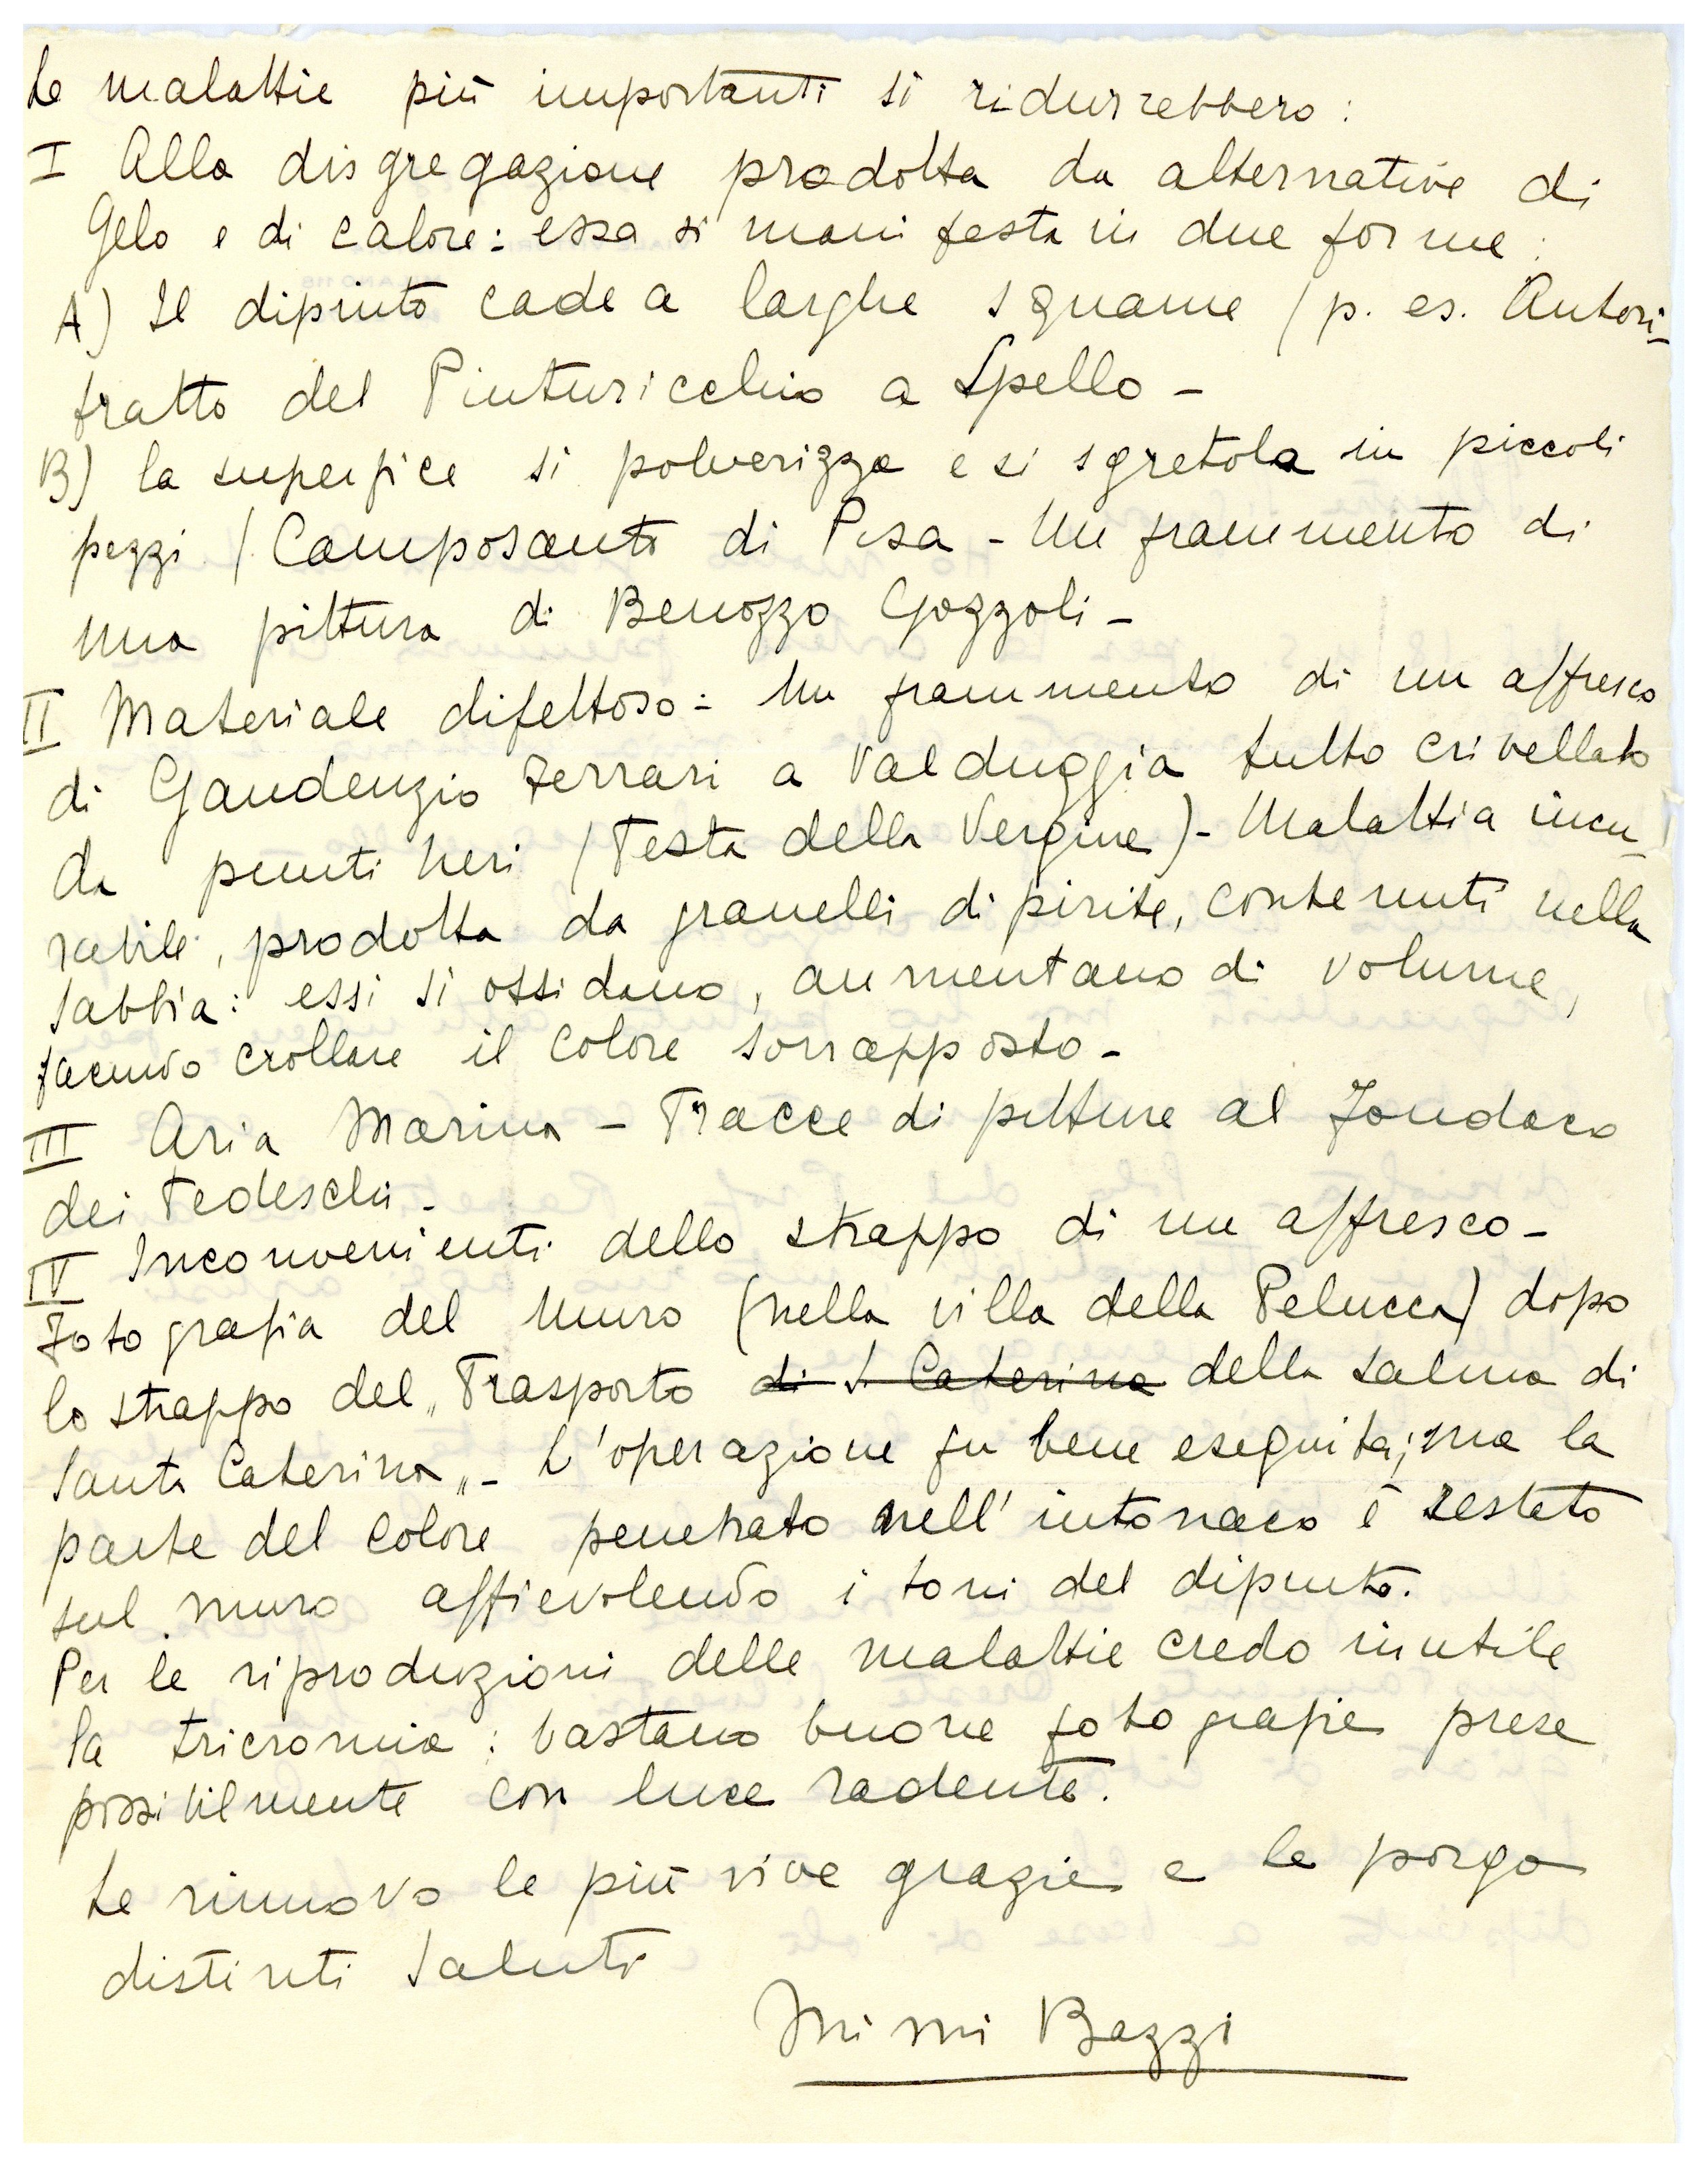 Le malattie più importanti si ridurrebbero:
I Alla disgregazione prodotta da alternative di
Gelo e di calore: essa si manifesta in due forme:
A) Il dipinto cade a larghe squame (p. es. Autori-
tratto del Pinturicchio a Spello -
B) la superfice si polverizza e si sgretola in piccoli
pezzi (Camposanto di Pisa - Un frammento di
una pittura di Benozzo Gozzoli -
II Materiale difettoso: Un frammento di un affresco
di Gaudenzio Ferrari a Valduggia tutto crivellato
da punti neri (Testa della Vergine) - Malattia incu-
rabile, prodotta da granelli di pirite, contenuti nella
sabbia: essi si ossidano, aumentano di volume,
facendo crollare il colore sovrapposto -
III Aria Marina - Tracce di pitture al Fondaco
dei Tedeschi -
IV Inconvenienti dello strappo di un affresco -
Fotografia del Muro (nella villa della Pelucca) dopo
lo strappo del „Trasporto di S. Caterina della salma di
Santa Caterina„ - L'operazione fu bene eseguita; ma la
parte del colore penetrato nell'intonaco è restato
sul muro affievolendo i toni del dipinto.
Per le riproduzioni delle malattie credo inutile
la tricromia: bastano buone fotografie prese
possibilmente con luce radente.
Le rinnovo le più vive grazie e le porgo
distinti saluti
Mimi Bazzi